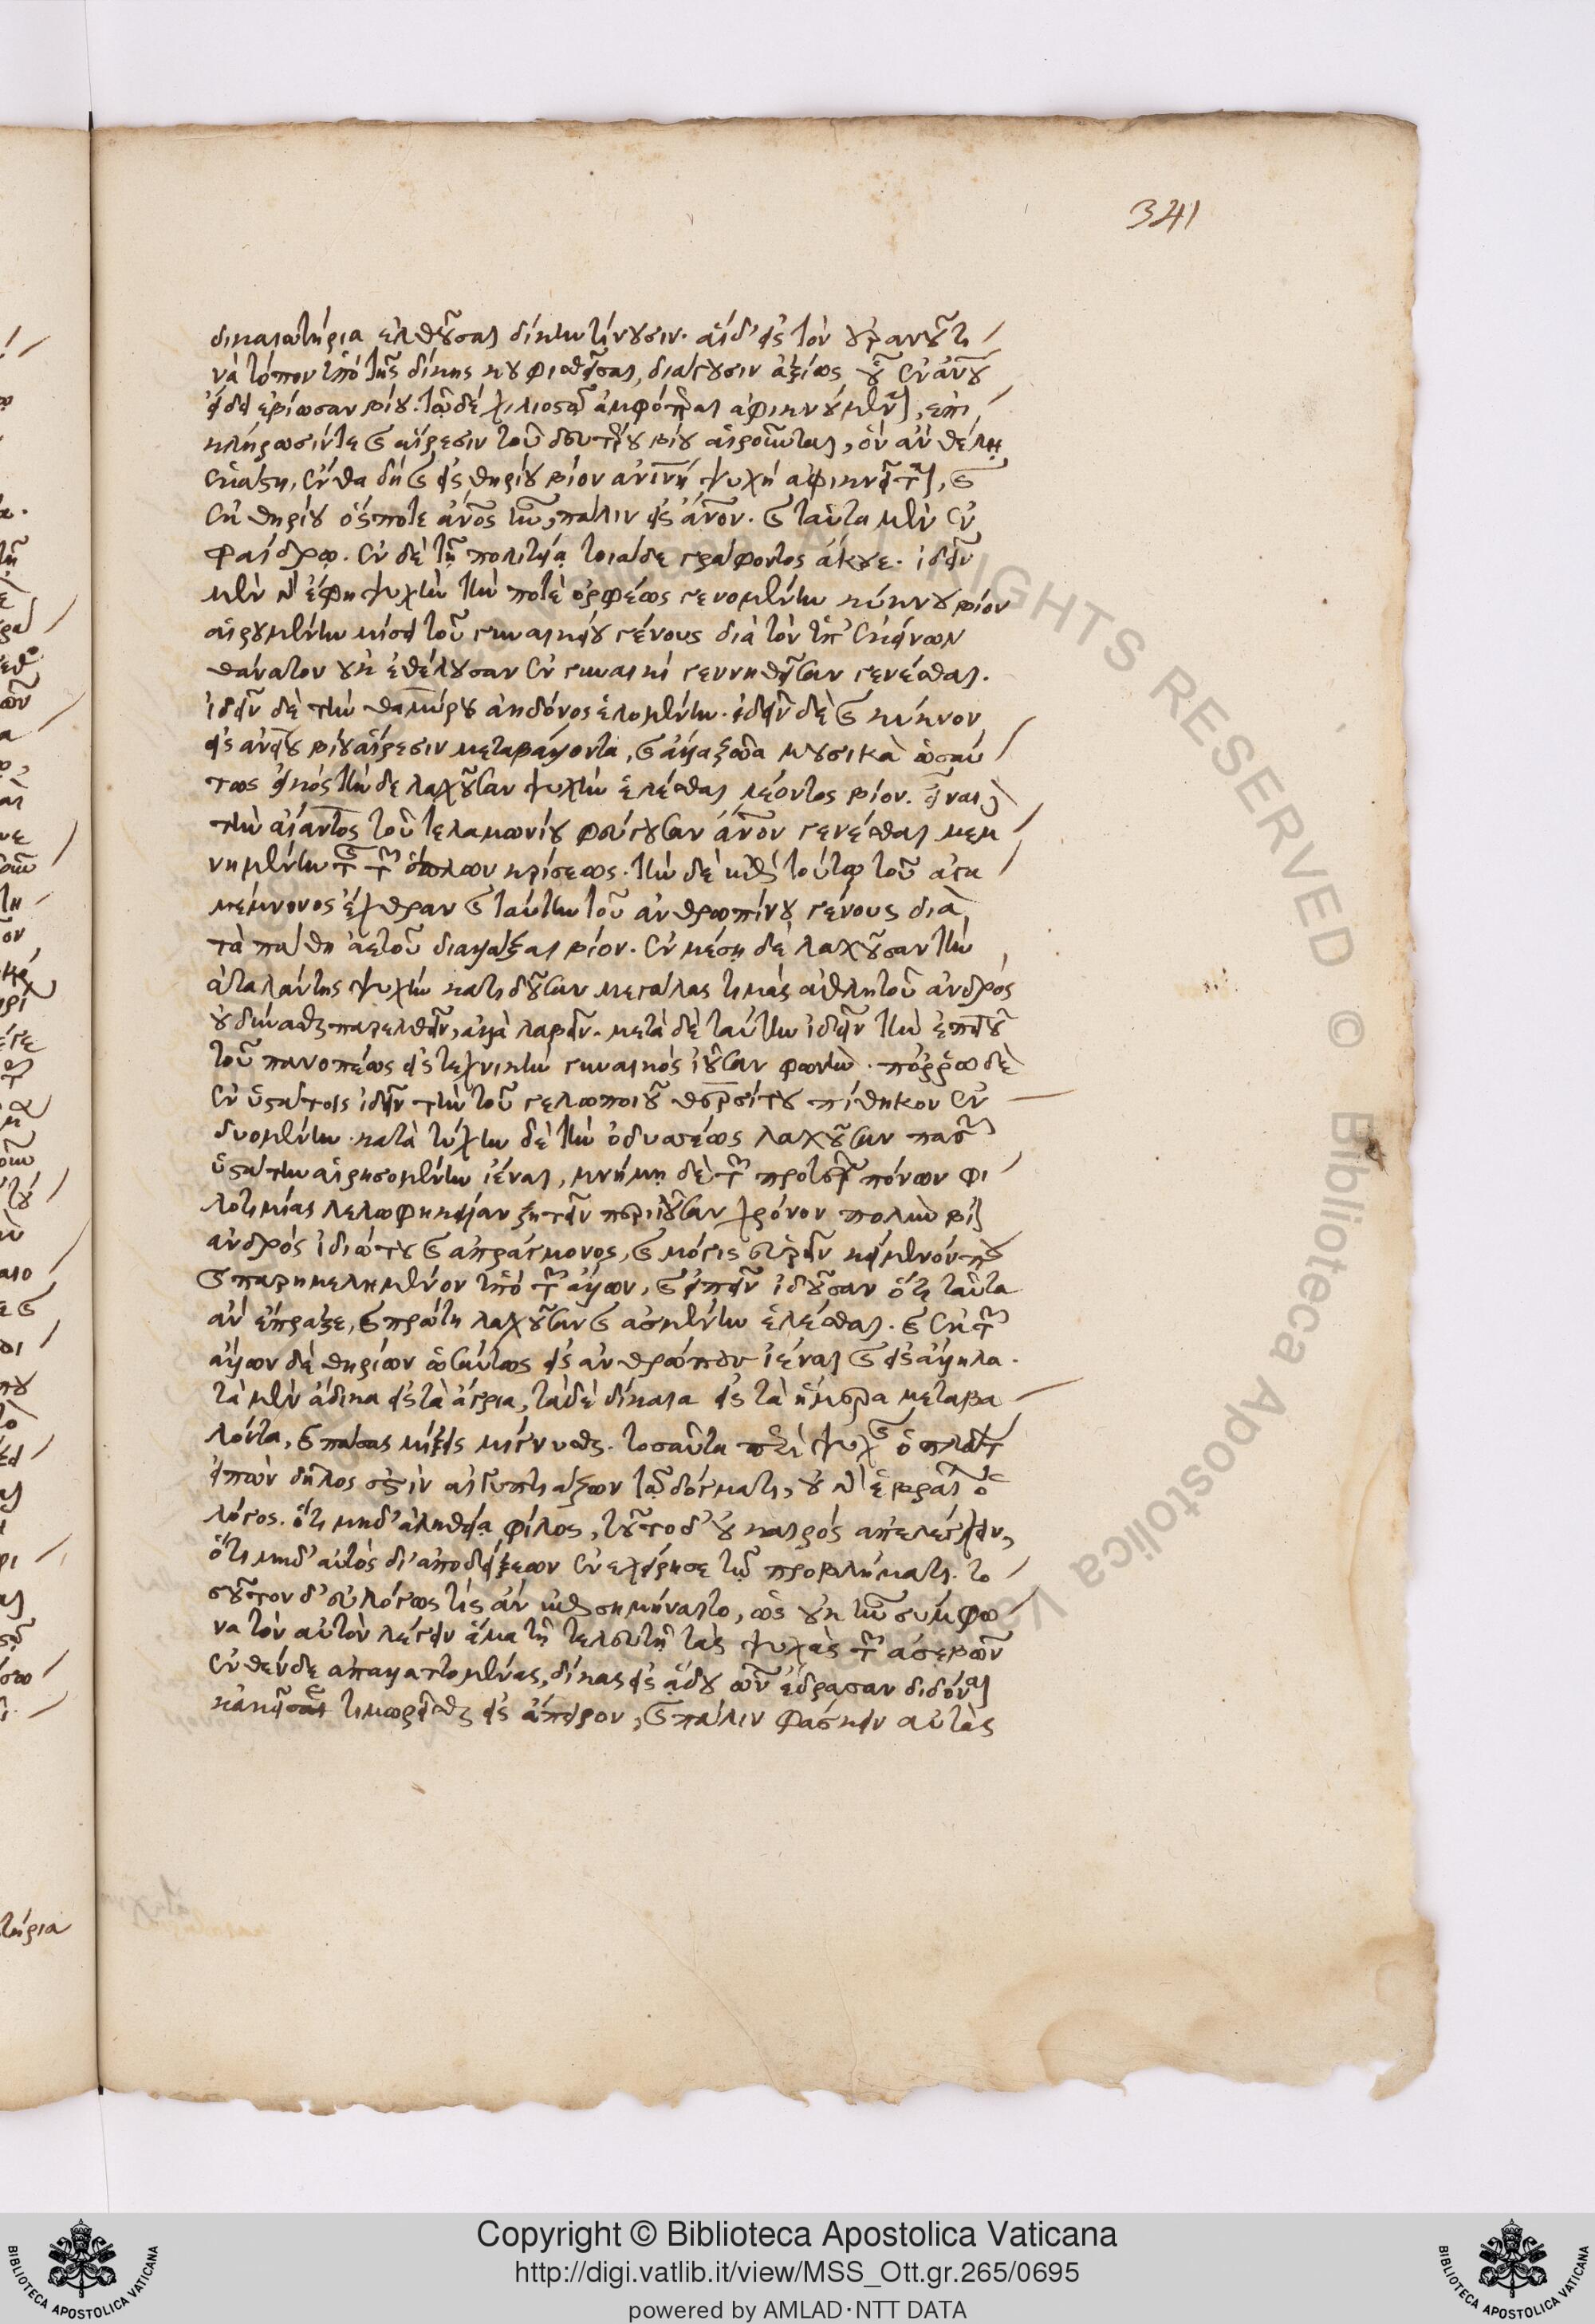 341
δικαιωτήρια ἐλθοῦσαι δίκην τίνουσιν. αἱ δ' εἰς τὸν οὐρανοῦ τι
νὰ τόπον ὑπὸ τῆς δίκης κουφισθεῖσαι, διάγουσιν ἀξίως οὗ ἐν ἀνου
εἴδει ἐβίωσαν βίου. τῷ δὲ χιλιοστῷ ἀμφότεραι ἀφικνούμεναι, ἐπὶ
κλήρωσίν τε καὶ αἵρεσιν τοῦ δευτέρου βίου αἱροῦνται, ὃν ἂν θέλῃ
ἑκάστη. ἔνθα δὴ καὶ εἰς θηρίου βίον ἀνίνη ψυχὴ ἀφικνεῖται, καὶ
ἐκ θηρίου ὅς ποτε ἄνος ἦν, πάλιν εἰς ἄνον. καὶ ταῦτα μὲν ἐν
φαίδρῳ. ἐν δὲ τῇ πολιτείᾳ τοιάδε γράφοντος ἄκουε. ἰδεῖν
μὲν γὰρ ἔφη ψυχὴν τήν ποτε ὀρφέως γενομένην κύκνου βίον
αἱρουμένην μίσει τοῦ γυναικείου γένους διὰ τὸν ὑπ' ἐκείνων
θάνατον οὐκ ἐθέλουσαν ἐν γυναικὶ γεννηθεῖσαν γενέσθαι.
ἰδεῖν δὲ τὴν θαμύρου ἀηδόνος ἑλομένην. ἰδεῖν δὲ καὶ κύκνον
εἰς ἀνείου βίου αἵρεσιν μεταβάλλοντα, καὶ ἄλλα ζῷα μουσικὰ ὡσαύ
τως εἰκός τὴν δε λαχοῦσαν ψυχὴν ἑλέσθαι λέοντος βίον. εἶναι δὲ
τὴν αἴαντος τοῦ τελαμωνίου φεύγουσαν ἄνον γενέσθαι μεμ
νημένην τῆς τῶν ὅπλων κρίσεως. τὴν δὲ μετὰ τοῦτο τοῦ ἀγα
μέμνονος ἔχθραν καὶ ταύτην τοῦ ἀνθρωπίνου γένους διὰ
τὰ πάθη ἀετοῦ διαλλάξαι βίον. ἐν μέσῃ δὲ λαχοῦσαν τὴν
ἀταλάντης ψυχὴν κατιδοῦσαν μεγάλας τιμὰς ἀθλητοῦ ἀνδρός
οὐ δύνασθαι παρελθεῖν, ἀλλὰ λαβεῖν. μετὰ δὲ ταύτην ἰδεῖν τὴν ἐπειοῦ
τοῦ πανοπέως εἰς τεχνικὴν γυναικὸς ἰοῦσαν φωνὴν. πόρρω δὲ
ἐν ὑστάτοις ἰδεῖν τὴν τοῦ γελωποιοῦ θερσίτου πίθηκον ἐν
δυομένην. κατὰ τύχην δὲ τὴν ὀδυσσέως λαχοῦσαν πασῶν
ὑστάτην αἱρησομένην ἰέναι, μνήμῃ δὲ τῶν προτέρων πόνων φι
λοτιμίας λελωφηκυῖαν ζητεῖν περιιοῦσαν χρόνον πολὺν βίον
ἀνδρὸς ἰδιώτου καὶ ἀπράγμονος, καὶ μόγις εὑρεῖν κείμενόν που
καὶ παρημελημένον ὑπὸ τῶν ἄλλων, καὶ εἰπεῖν ἰδοῦσαν ὅτι ταῦτα
ἂν ἔπραξε, καὶ πρώτη λαχοῦσαν καὶ ἀσμένην ἑλέσθαι. καὶ ἐκ τῶν
ἄλλων δὲ θηρίων ὡσαύτως εἰς ἀνθρώπου ἰέναι καὶ εἰς ἄλληλα.
τὰ μὲν ἄδικα εἰς τὰ ἄγρια, τὰ δὲ δίκαια εἰς τὰ ἥμερα μεταβα
λόντα, καὶ πάσας μίξεις μίγνυσθαι. τοσαῦτα περὶ ψυχῆς ὁ πλάτων
εἰπὼν δῆλός ἐστιν αἰγυπτιάζων τῷ δόγματι, οὐ γὰρ ἑβραίων ὁ
λόγος. ὅτι μηδ' ἀληθείᾳ φίλος, τοῦτο δ' οὐ καιρὸς ἀπελέγχειν,
ὅτι μηδ' αὐτὸς δι' ἀποδείξεων ἐνεχείρησε τῷ προβλήματι. το
σοῦτον δ' εὐλόγως τις ἂν ἐπισημήναιτο, ὡς οὐκ ἦν σύμφω
να τὸν αὐτὸν λέγειν ἅμα τῇ τελευτῇ τὰς ψυχὰς τῶν ἀσεβῶν
ἐνθένδε ἀπαλλαττομένας, δίκας εἰς ᾅδου ὧν ἔδρασαν διδόναι
κἀκεῖσε τιμωρεῖσθαι εἰς ἄπειρον, καὶ πάλιν φάσκειν αὐτὰς
τήρια
Copyright © Biblioteca Apostolica Vaticana
http://digi.vatlib.it/view/MSS_Ott.gr.265/0695
powered by AMLAD·NTT DATA